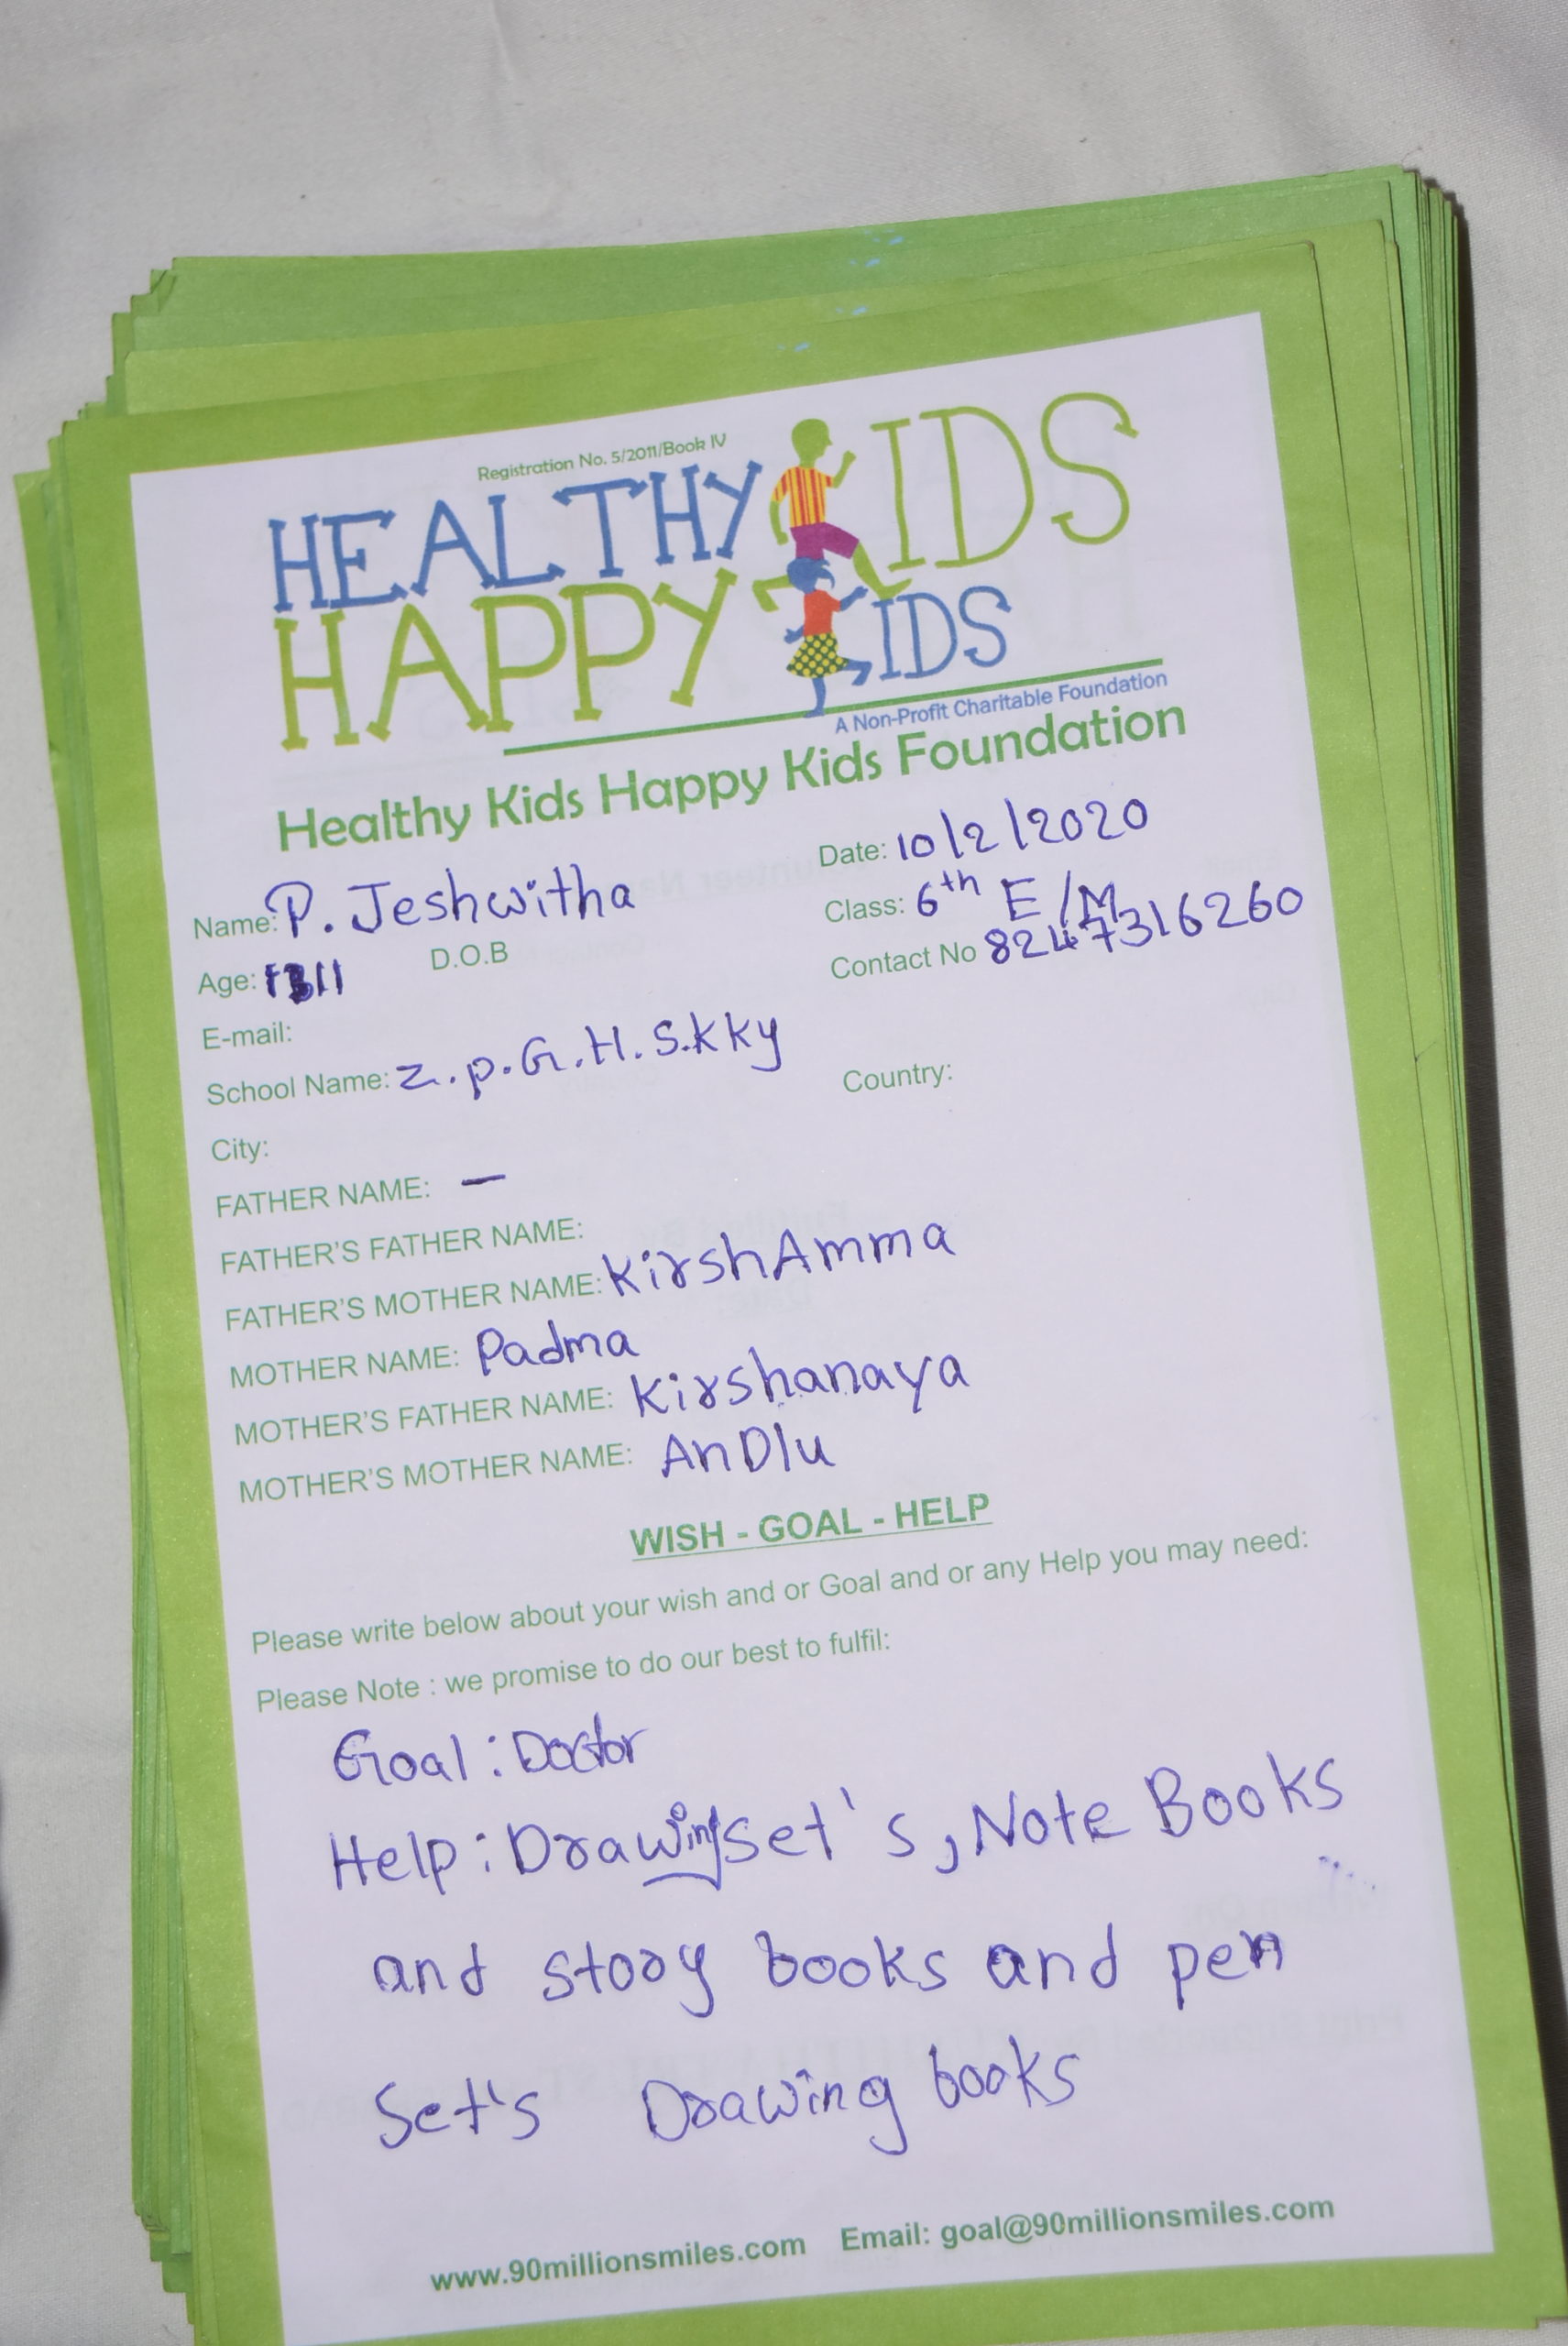 Registration No. 5/2011/Book IV
HEALTHY KIDS
HAPPY KIDS
A Non-Profit Charitable Foundation
Healthy Kids Happy Kids Foundation
Date: 10/2/2020
Name: P. Jeshwitha
Class: 6th E/M
Age: 11 D.O.B
Contact No 8247316260
E-mail:
School Name: Z.p.G.H.S.kky
Country:
City:
FATHER NAME: —
FATHER'S FATHER NAME:
FATHER'S MOTHER NAME: KirshAmma
MOTHER NAME: Padma
MOTHER'S FATHER NAME: Kirshanaya
MOTHER'S MOTHER NAME: AnDlu
WISH - GOAL - HELP
Please write below about your wish and or Goal and or any Help you may need:
Please Note : we promise to do our best to fulfil:
Goal : Doctor
Help : Drawing set's, Note Books
and story books and pen
Set's Drawing books
www.90millionsmiles.com Email: goal@90millionsmiles.com